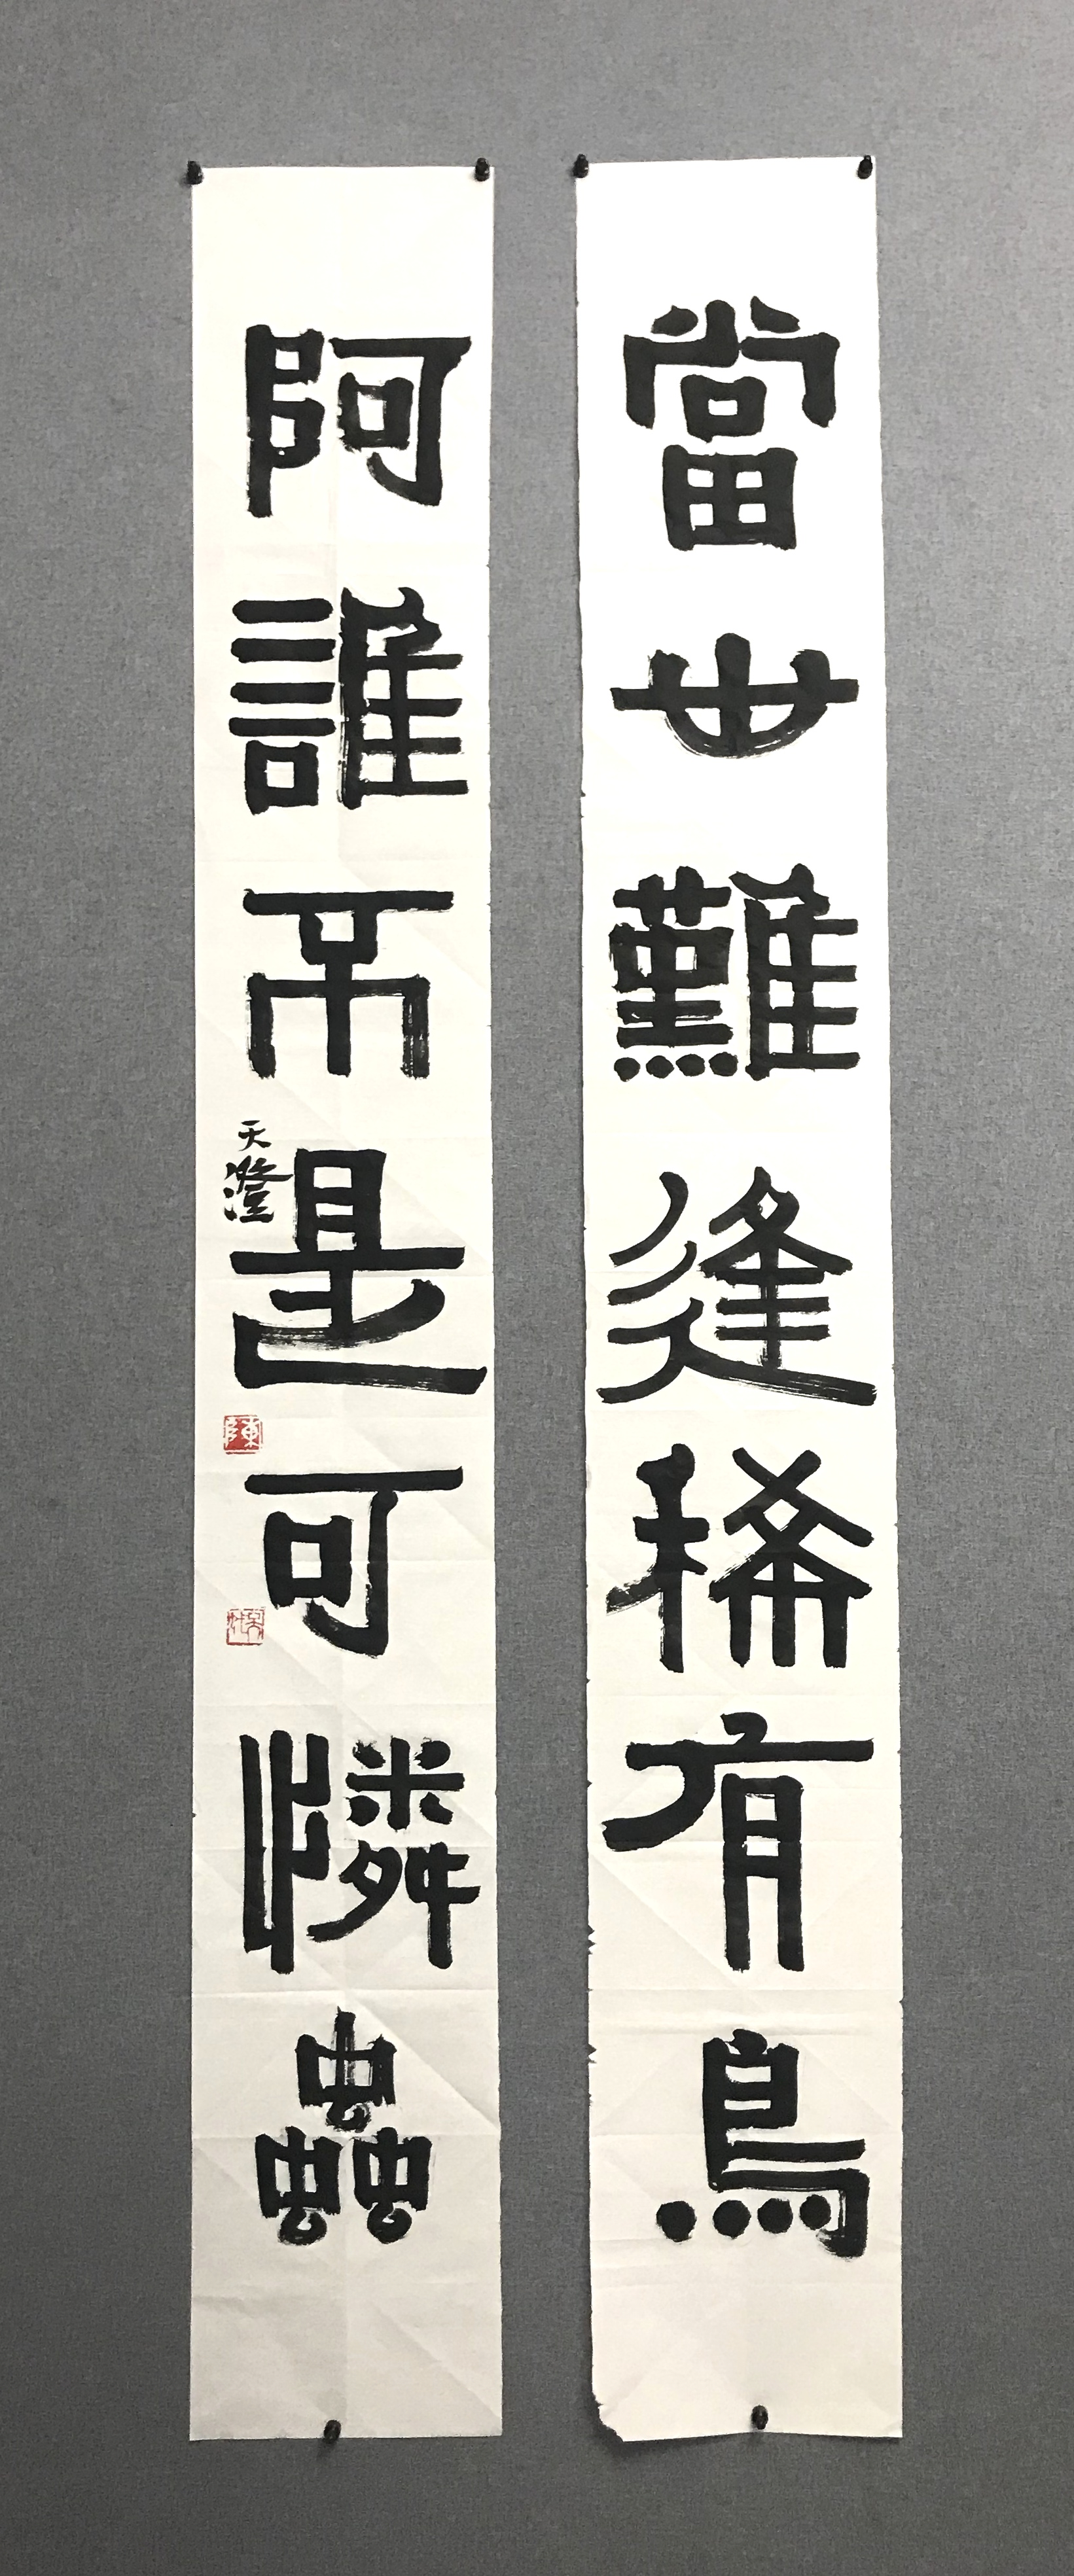 當世難逢稀有鳥
阿誰不是可憐蟲
天澄
陳